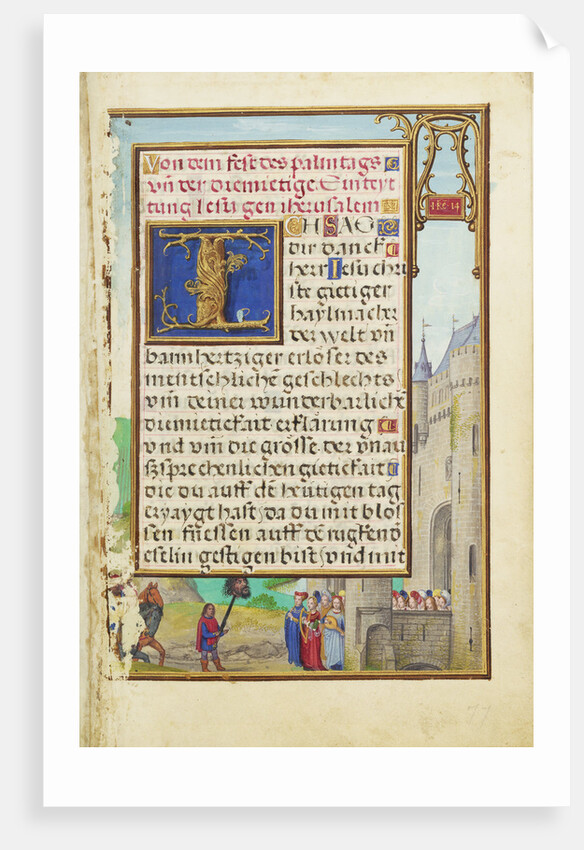 Von dem fest des palmtags
vn̄ der diemietige. Einreyt
tung Iesu gen iherusalem
ICH SAG
dir danck
herr Iesu chri
ste gietiger
haylmacher
der welt vn̄
barmhertziger erlöser des
mentschlichē geschlechts
vm̄ deiner wunderbarlichē
diemietikait erklärung
vnd vm̄ die grösse. der vnau
ßsprechenlichen gietikait
die du auff dē heütigen tag
erzaygt hast, da du mit blos
sen fuessen auff dē rugkend
eselin gestigen bist, vnd mit